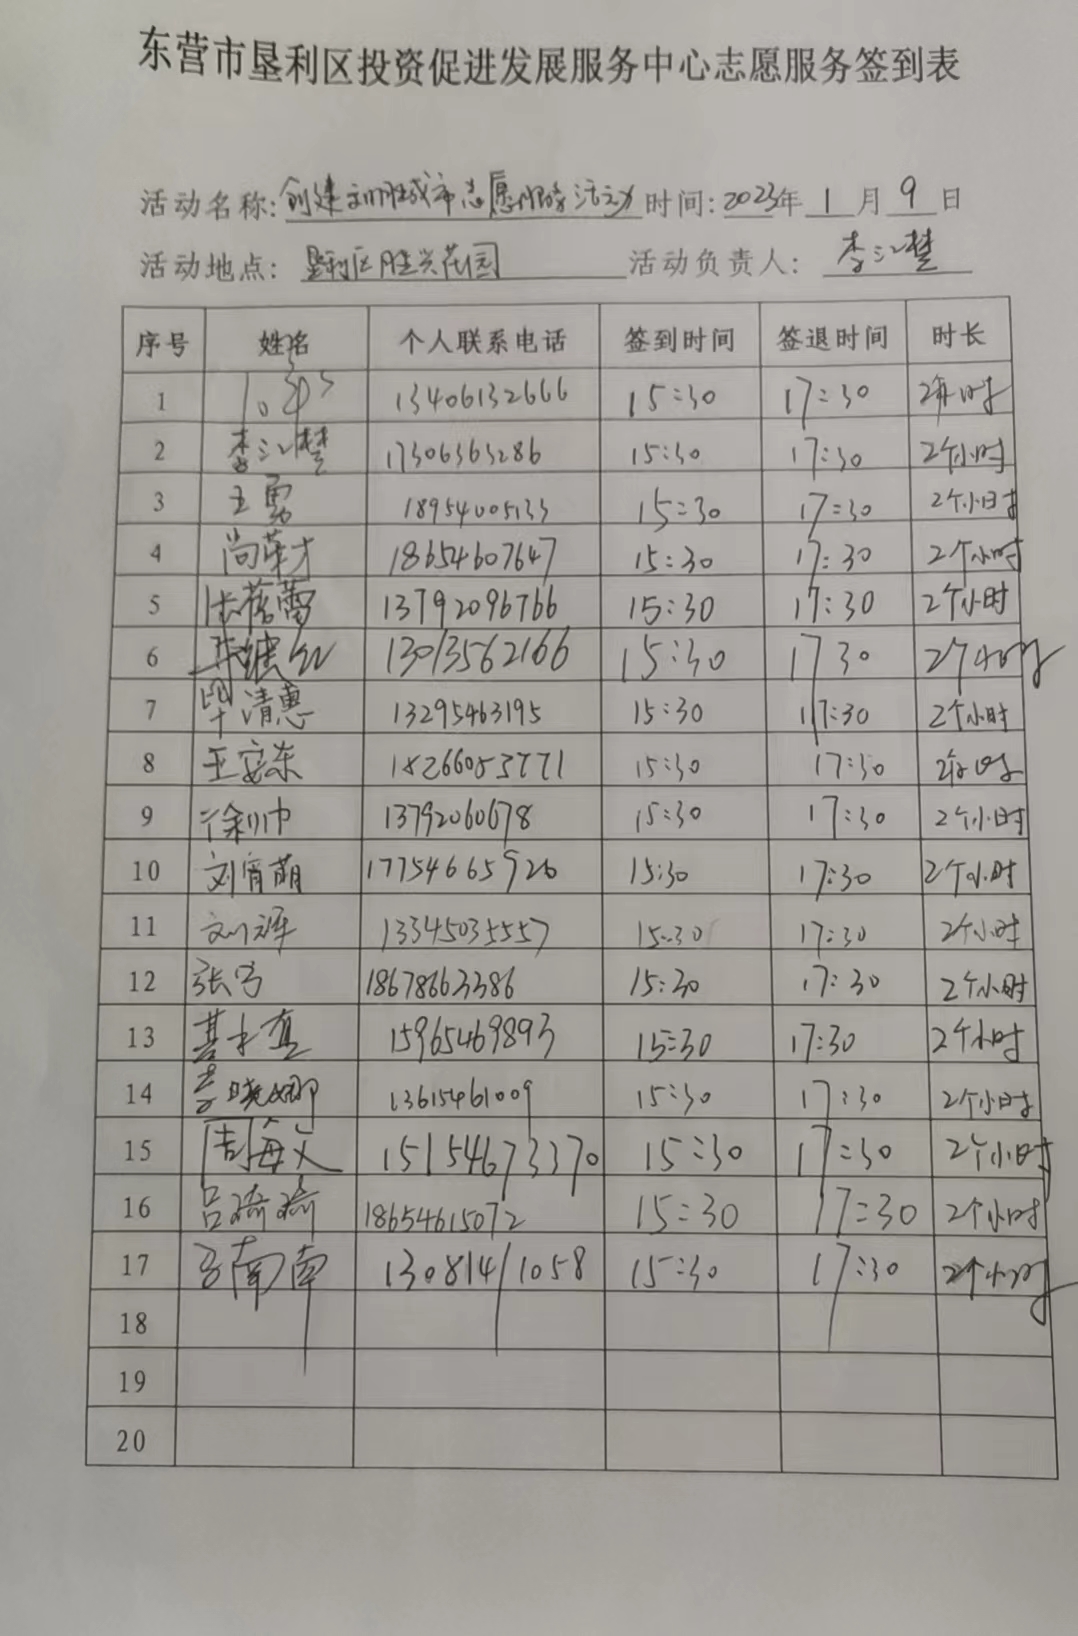 东营市垦利区投资促进发展服务中心志愿服务签到表
活动名称: 创建文明城市志愿服务活动 时间: 2023年 1 月 9 日
活动地点: 垦利区胜兴花园 活动负责人: 李江楚
序号 姓名 个人联系电话 签到时间 签退时间 时长
1 13406132666 15:30 17:30 2个小时
2 李江楚 17306363286 15:30 17:30 2个小时
3 王勇 18954005133 15:30 17:30 2个小时
4 尚华才 18654607647 15:30 17:30 2个小时
5 张蓓蕾 13792096766 15:30 17:30 2个小时
6 13013562166 15:30 17 30 2个小时
7 毕清惠 13295463195 15:30 17:30 2个小时
8 王安东 18266053771 15:30 17:30 2个小时
9 徐利巾 13792060678 15:30 17:30 2个小时
10 刘宵萌 17754665926 15:30 17:30 2个小时
11 13345035557 15:30 17:30 2个小时
12 张弓 18678663386 15:30 17:30 2个小时
13 15965469893 15:30 17:30 2个小时
14 李晓娜 13615461009 15:30 17:30 2个小时
15 周海文 15154673370 15:30 17:30 2个小时
16 吕琦琦 18654615072 15:30 17:30 2个小时
17 南南 13081411058 15:30 17:30 2个小时
18
19
20